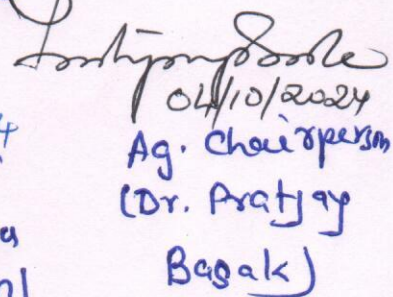 04/10/2024
Ag. Chairperson
(Dr. Pratyay
Basak)